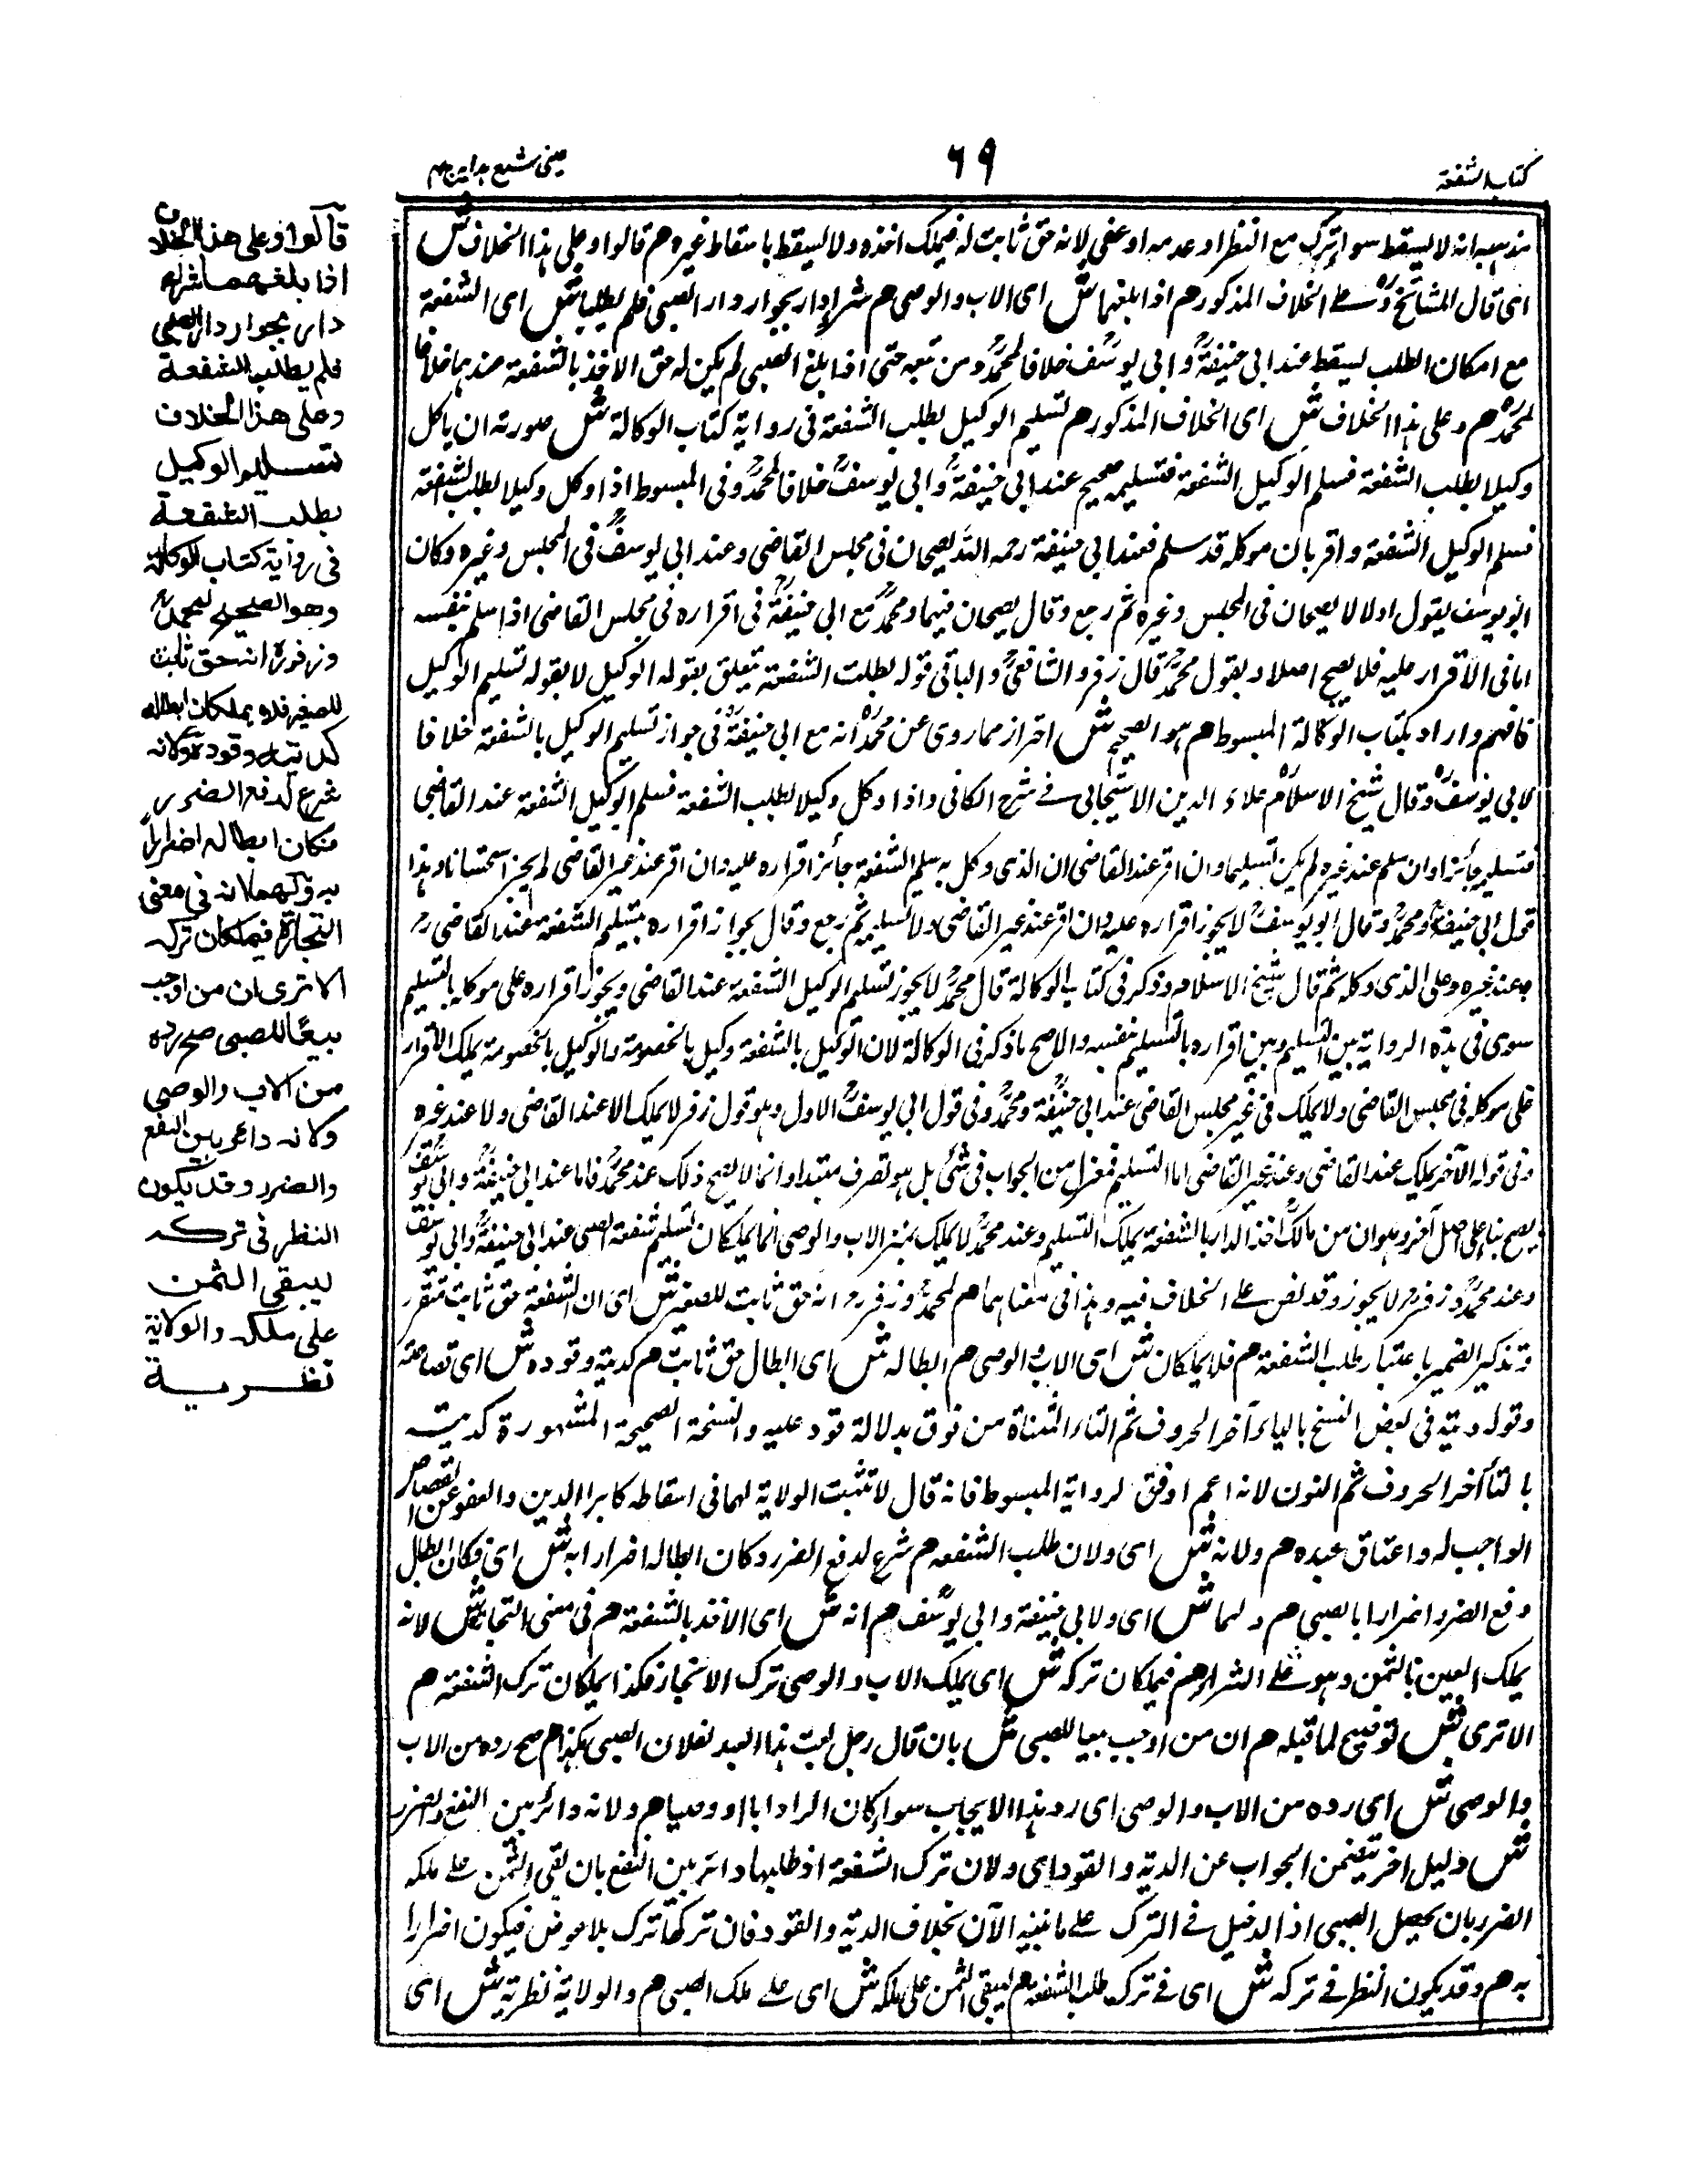 كتاب الشفعة
٦٩
عيني شرح هداية ج ٤
مذهبه انه لا يسقط سواء ترك مع النظر او عدمه او عفى لانه حق ثابت له فيملك اخذه ولا يسقط باسقاط غيره هم قالوا وعلى هذا الخلاف ش
اى قال المشائخ رح على الخلاف المذكور هم اذا بلغهما ش اى الاب والوصى هم شراء دار بجوار دار الصبى فلم يطلبا ش اى الشفعة
مع امكان الطلب يسقط عند ابى حنيفة وابى يوسف خلافا لمحمد ومن تبعه حتى اذا بلغ الصبى لم يكن له حق الاخذ بالشفعة عندهما خلافا
لمحمد هم وعلى هذا الخلاف ش اى الخلاف المذكور هم تسليم الوكيل بطلب الشفعة فى رواية كتاب الوكالة ش صورته ان ياكل
وكيلا بطلب الشفعة فسلم الوكيل الشفعة فتسليمه صحيح عند ابى حنيفة وابى يوسف خلافا لمحمد وفى المبسوط اذا وكل وكيلا بطلب الشفعة
فسلم الوكيل الشفعة واقر بان موكله قد سلم فعند ابى حنيفة رحمه الله يصحان فى مجلس القاضى وعند ابى يوسف فى المجلس وغيره وكان
ابو يوسف يقول اولا لا يصحان فى المجلس وغيره ثم رجع وقال يصحان فيهما ومحمد مع ابى حنيفة فى اقراره فى مجلس القاضى اذا سلم بنفسه
اما فى الاقرار عليه فلا يصح اصلا وبقول محمد قال زفر والشافعى والباقى قوله بطلب الشفعة يتعلق بقوله الوكيل لا بقوله تسليم الوكيل
فافهم واراد بكتاب الوكالة المبسوط هم هو الصحيح ش احتراز مما روى عن محمد انه مع ابى حنيفة فى جواز تسليم الوكيل بالشفعة خلافا
لابى يوسف وقال شيخ الاسلام علاء الدين الاسبيجابى فى شرح الكافى واذا وكل وكيلا لطلب الشفعة فسلم الوكيل الشفعة عند القاضى
فتسليمه جائز وان سلم عند غيره لم يكن تسليما وان اقر عند القاضى ان الذى وكل به سلم الشفعة جائز اقراره عليه وان اقر عند غير القاضى لم يجز استحسانا وهذا
قول ابى حنيفة ومحمد وقال ابو يوسف لا يجوز اقراره عليه وان اقر عند غير القاضى ولا تسليمه ثم رجع وقال بجواز اقراره بتسليم الشفعة عند القاضى
وعند غيره وعلى الذى وكله ثم قال شيخ الاسلام وذكر فى كتاب الوكالة قال محمد لا يجوز تسليم الوكيل الشفعة عند القاضى ويجوز اقراره على موكله بالتسليم
سوى فى هذه الرواية بين التسليم وبين اقراره بالتسليم بنفسه والاصح ما ذكر فى الوكالة لان الوكيل بالشفعة وكيل بالخصومة والوكيل بالخصومة يملك الاقرار
على موكله فى مجلس القاضى ولا يملك فى غير مجلس القاضى عند ابى حنيفة ومحمد وفى قول ابى يوسف الاول وهو قول زفر لا يملك الا عند القاضى ولا عند غيره
وفى قوله الآخر يملك عند القاضى وعند غير القاضى اما التسليم من الجواب فى شئ بل هو تصرف مبتدا وانما لا يصح ذلك عند محمد فاما عند ابى حنيفة وابى يوسف
يصح بناء على اصل آخر وهو ان من مالك اخذ الدار بالشفعة يملك التسليم وعند محمد لا يملك الاب والوصى انما يملكان تسليم شفعة الصبى عند ابى حنيفة وابى يوسف
وعند محمد وزفر لا يجوز وقد نص على الخلاف فيه وهذا فى معناهما هم لمحمد وزفر انه حق ثابت للصغير ش اى ان الشفعة حق ثابت متقرر
وتذكير الضمير باعتبار طلب الشفعة هم فلا يملكان ش اى الاب والوصى هم ابطاله ش اى ابطال حق ثابت هم كديته وقوده ش اى قصاصه
وقوله ديته فى بعض النسخ بالياء آخر الحروف ثم التاء المثناة من فوق بدلالة قود عليه والنسخة الصحيحة المشهورة كدينه
بالياء آخر الحروف ثم النون لانه اعم اوفق لرواية المبسوط فانه قال لا تثبت الولاية لهما فى اسقاطه كابراء الدين والعفو عن القصاص
الواجب له واعتاق عبده هم ولانه ش اى ولان طلب الشفعة هم شرع لدفع الضرر وكان ابطاله اضرارا به ش اى فكان ابطال
دفع الضرر اضرارا بالصبى هم ولهما ش اى ولابى حنيفة وابى يوسف هم انه ش اى الاخذ بالشفعة هم فى معنى التجارة ش لانه
يملك العين بالثمن وهو على الشراء هم فيملكان تركه ش اى يملك الاب والوصى ترك الاتجار فكذا يملكان ترك الشفعة هم
الا ترى ش توضيح لما قبله هم ان من اوجب بيعا للصبى ش بان قال رجل بعت هذا العبد لفلان الصبى بكذا هم صح رده من الاب
والوصى ش اى رده من الاب والوصى اى رد هذا الايجاب سواء كان الراد ابا او وصيا هم ولانه دائر بين النفع والضرر
ش دليل اخر يتضمن الجواب عن الدية والقود اى ولان ترك الشفعة اذ طلبها دائر بين النفع بان بقى الثمن على ملكه
الضرر بان يحصل الصبى اذ الدخيل فى الترك على ما نبينه الآن بخلاف الدية والقود فان تركها ترك بلا عوض فيكون اضرارا
به هم وقد يكون النظر فى تركه ش اى فى ترك طلب الشفعة هم ليبقى الثمن على ملكه ش اى على ملك الصبى هم والولاية نظرية ش اى
قالوا وعلى هذا الخلاف
اذا بلغهما شراء
دار بجوار دار الصبى
فلم يطلبا الشفعة
وعلى هذا الخلاف
تسليم الوكيل
بطلب الشفعة
فى رواية كتاب الوكالة
وهو الصحيح لمحمد
وزفر انه حق ثابت
للصغير فلا يملكان ابطاله
كديته وقوده ولانه
شرع لدفع الضرر
فكان ابطاله اضرارا
به ولهما انه فى معنى
التجارة فيملكان تركه
الا ترى ان من اوجب
بيعًا للصبى صح رده
من الاب والوصى
ولانه دائر بين النفع
والضرر وقد يكون
النظر فى تركه
ليبقى الثمن
على ملكه والولاية
نظرية